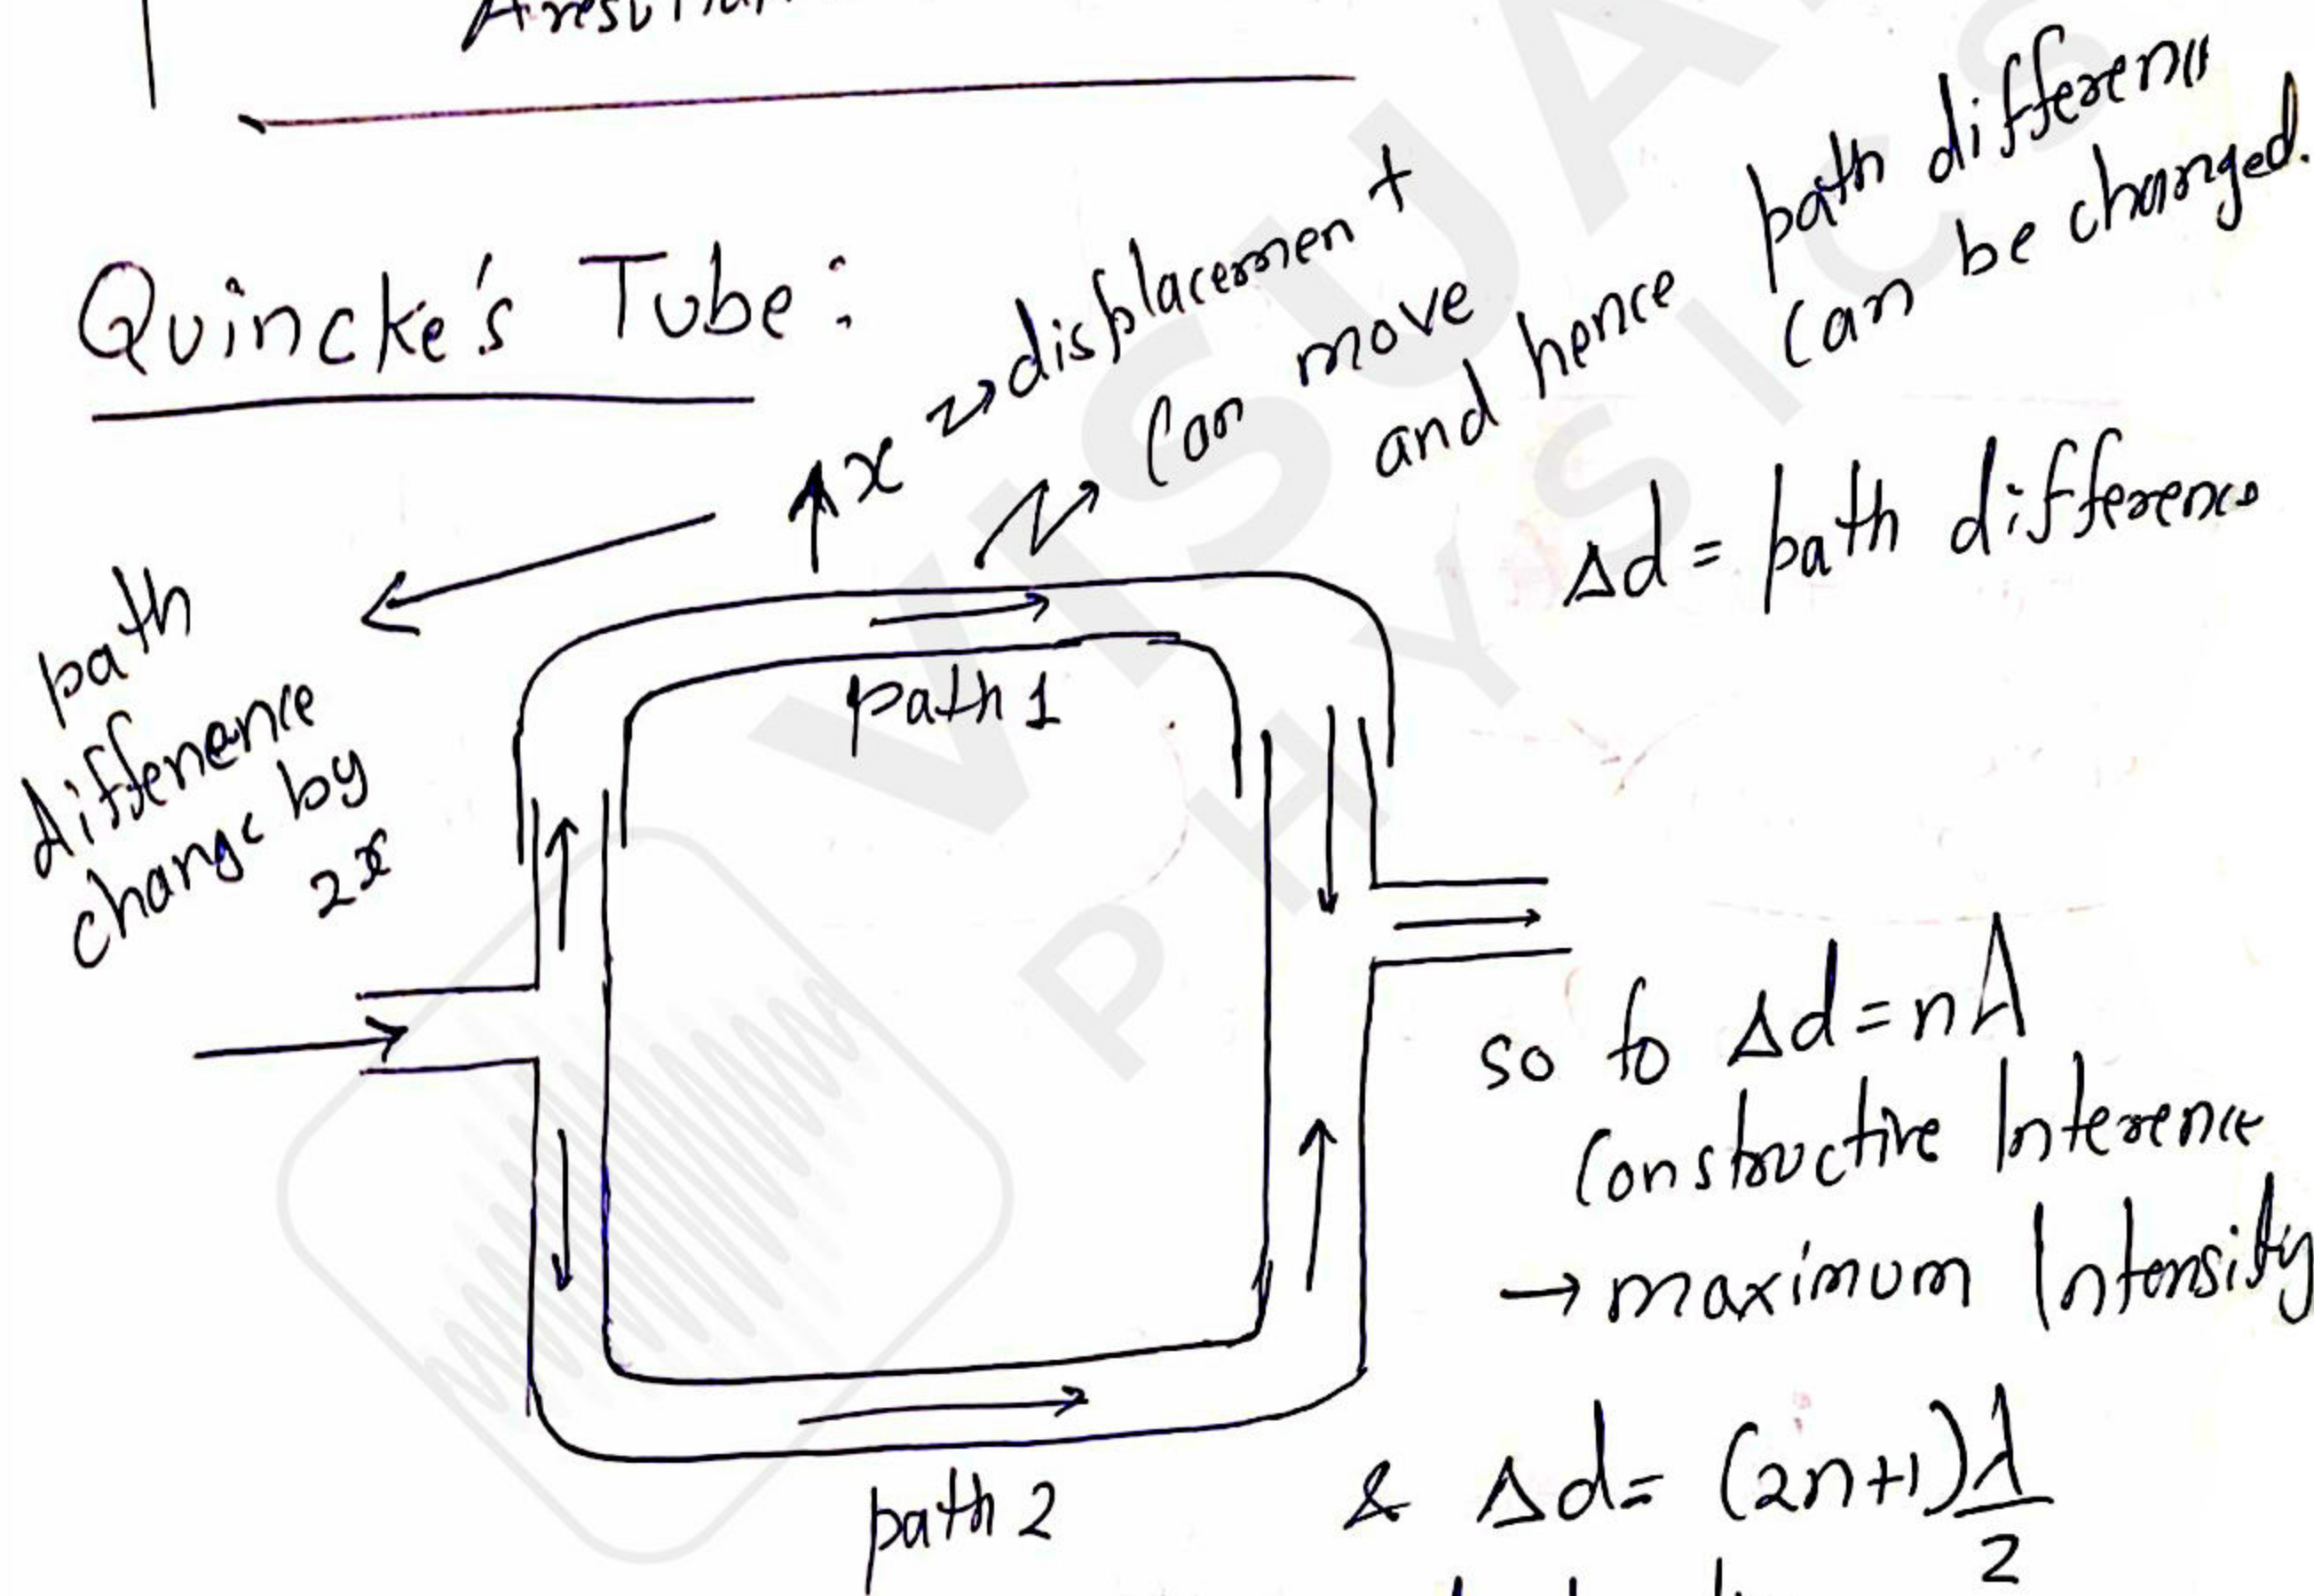 Quincke's Tube:
x → displacement
Can move
and hence path difference
can be changed.
Δd = path difference
path
difference
change by
2x
path 1
so fo Δd = nλ
Constructive Interence
→ maximum Intensity
path 2
& Δd = (2n+1)λ/2
VISUA
PHYSICS